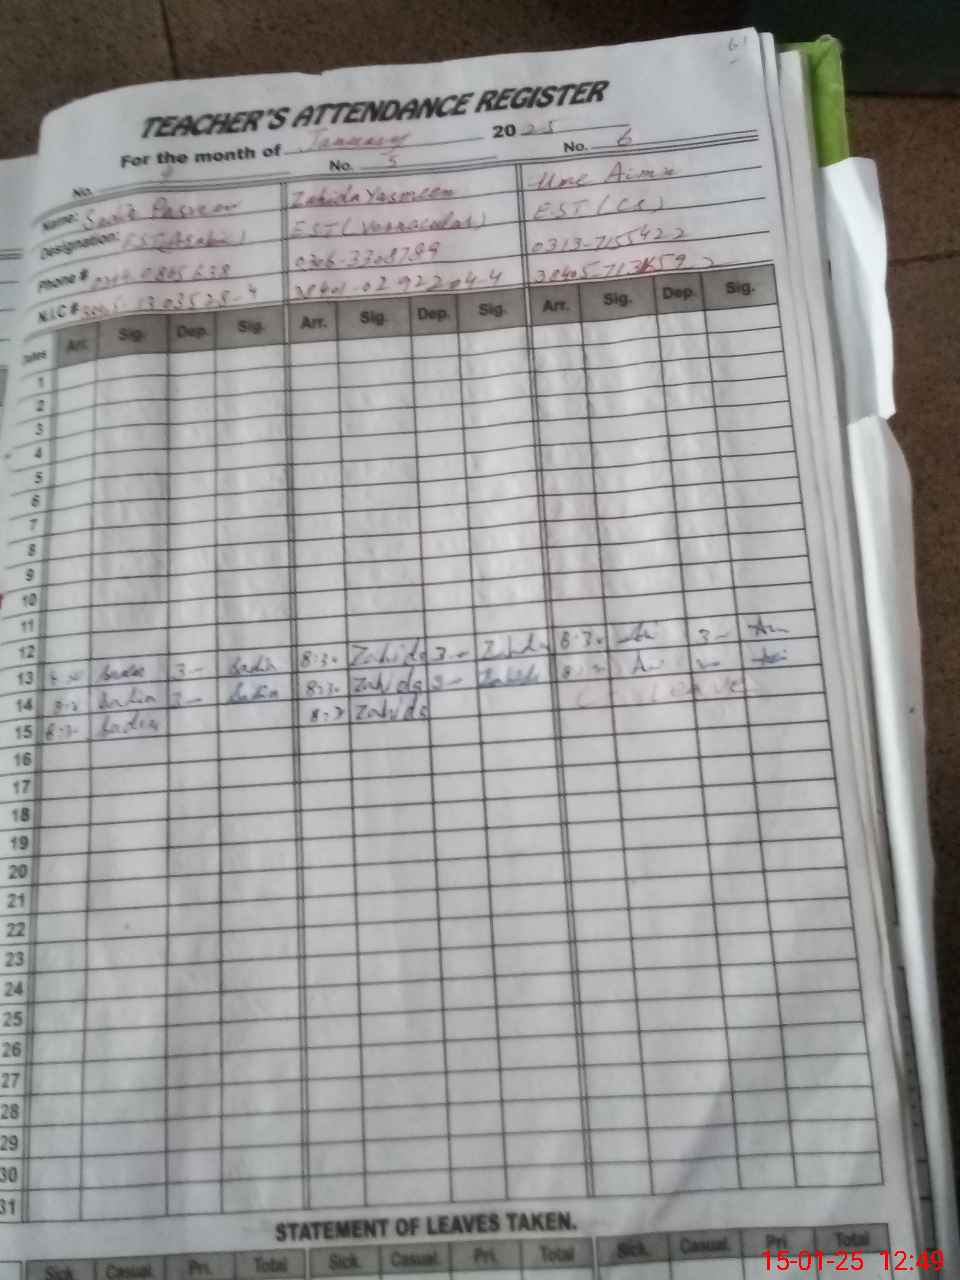 61
TEACHER'S ATTENDANCE REGISTER
For the month of January 2025
No. No. 5 No. 6
Name: Zahida Yasmeen Ume Aima
Designation: EST(Arabic) EST(Vernacular) EST(CS)
Phone # 0306-3308799 0313-7155422
N.I.C #
Dates Arr. Sig. Dep. Sig. Arr. Sig. Dep. Sig. Arr. Sig. Dep. Sig.
1
2
3
4
5
6
7
8
9
10
11
12
13 Sadia 3- Sadia 8:30 Zahida 3- Zahida 8:30 3-
14 Sadia 3- Sadia 8:30 Zahida 3- Zahida
15 8:30 Sadia 8:30 Zahida Leave
16
17
18
19
20
21
22
23
24
25
26
27
28
29
30
31
STATEMENT OF LEAVES TAKEN.
Sick. Casual. Pri. Total Sick. Casual. Pri. Total Sick. Casual. Pri. Total
15-01-25 12:49